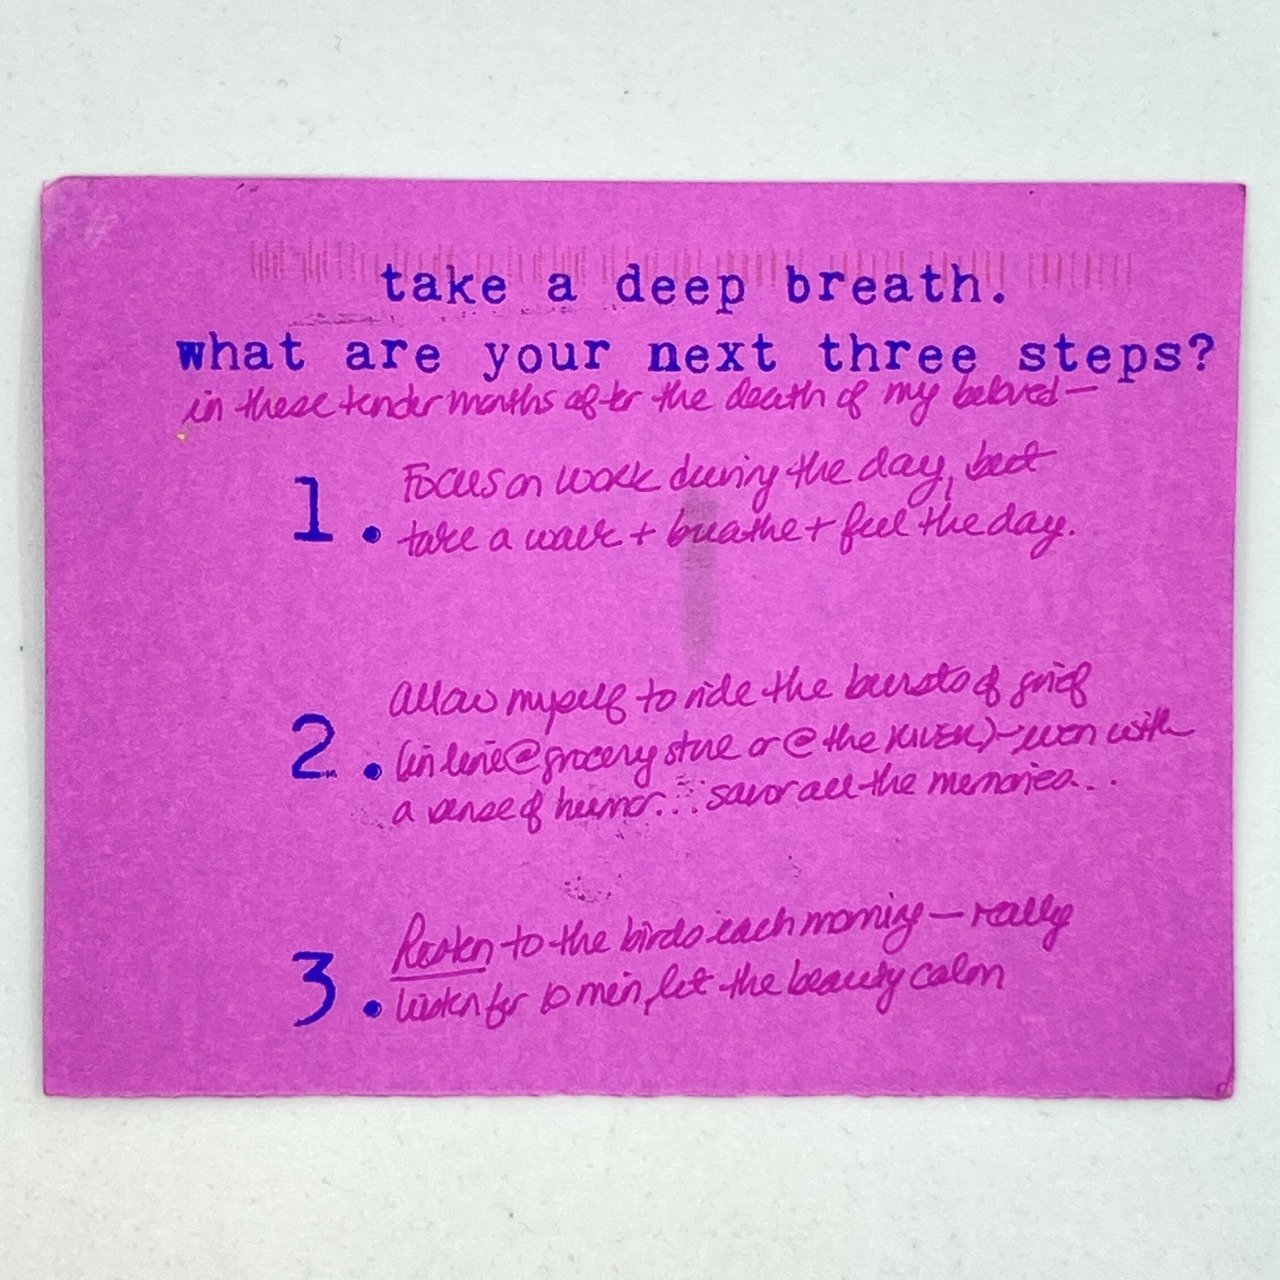 take a deep breath.
what are your next three steps?
in these tender months after the death of my beloved—
1. Focus on work during the day, but
take a walk + breathe + feel the day.
2. allow myself to ride the bursts of grief
(in line @ grocery store or @ the RIVER) – even with
a sense of humor... savor all the memories...
3. Listen to the birds each morning — really
listen for 10 min, let the beauty calm